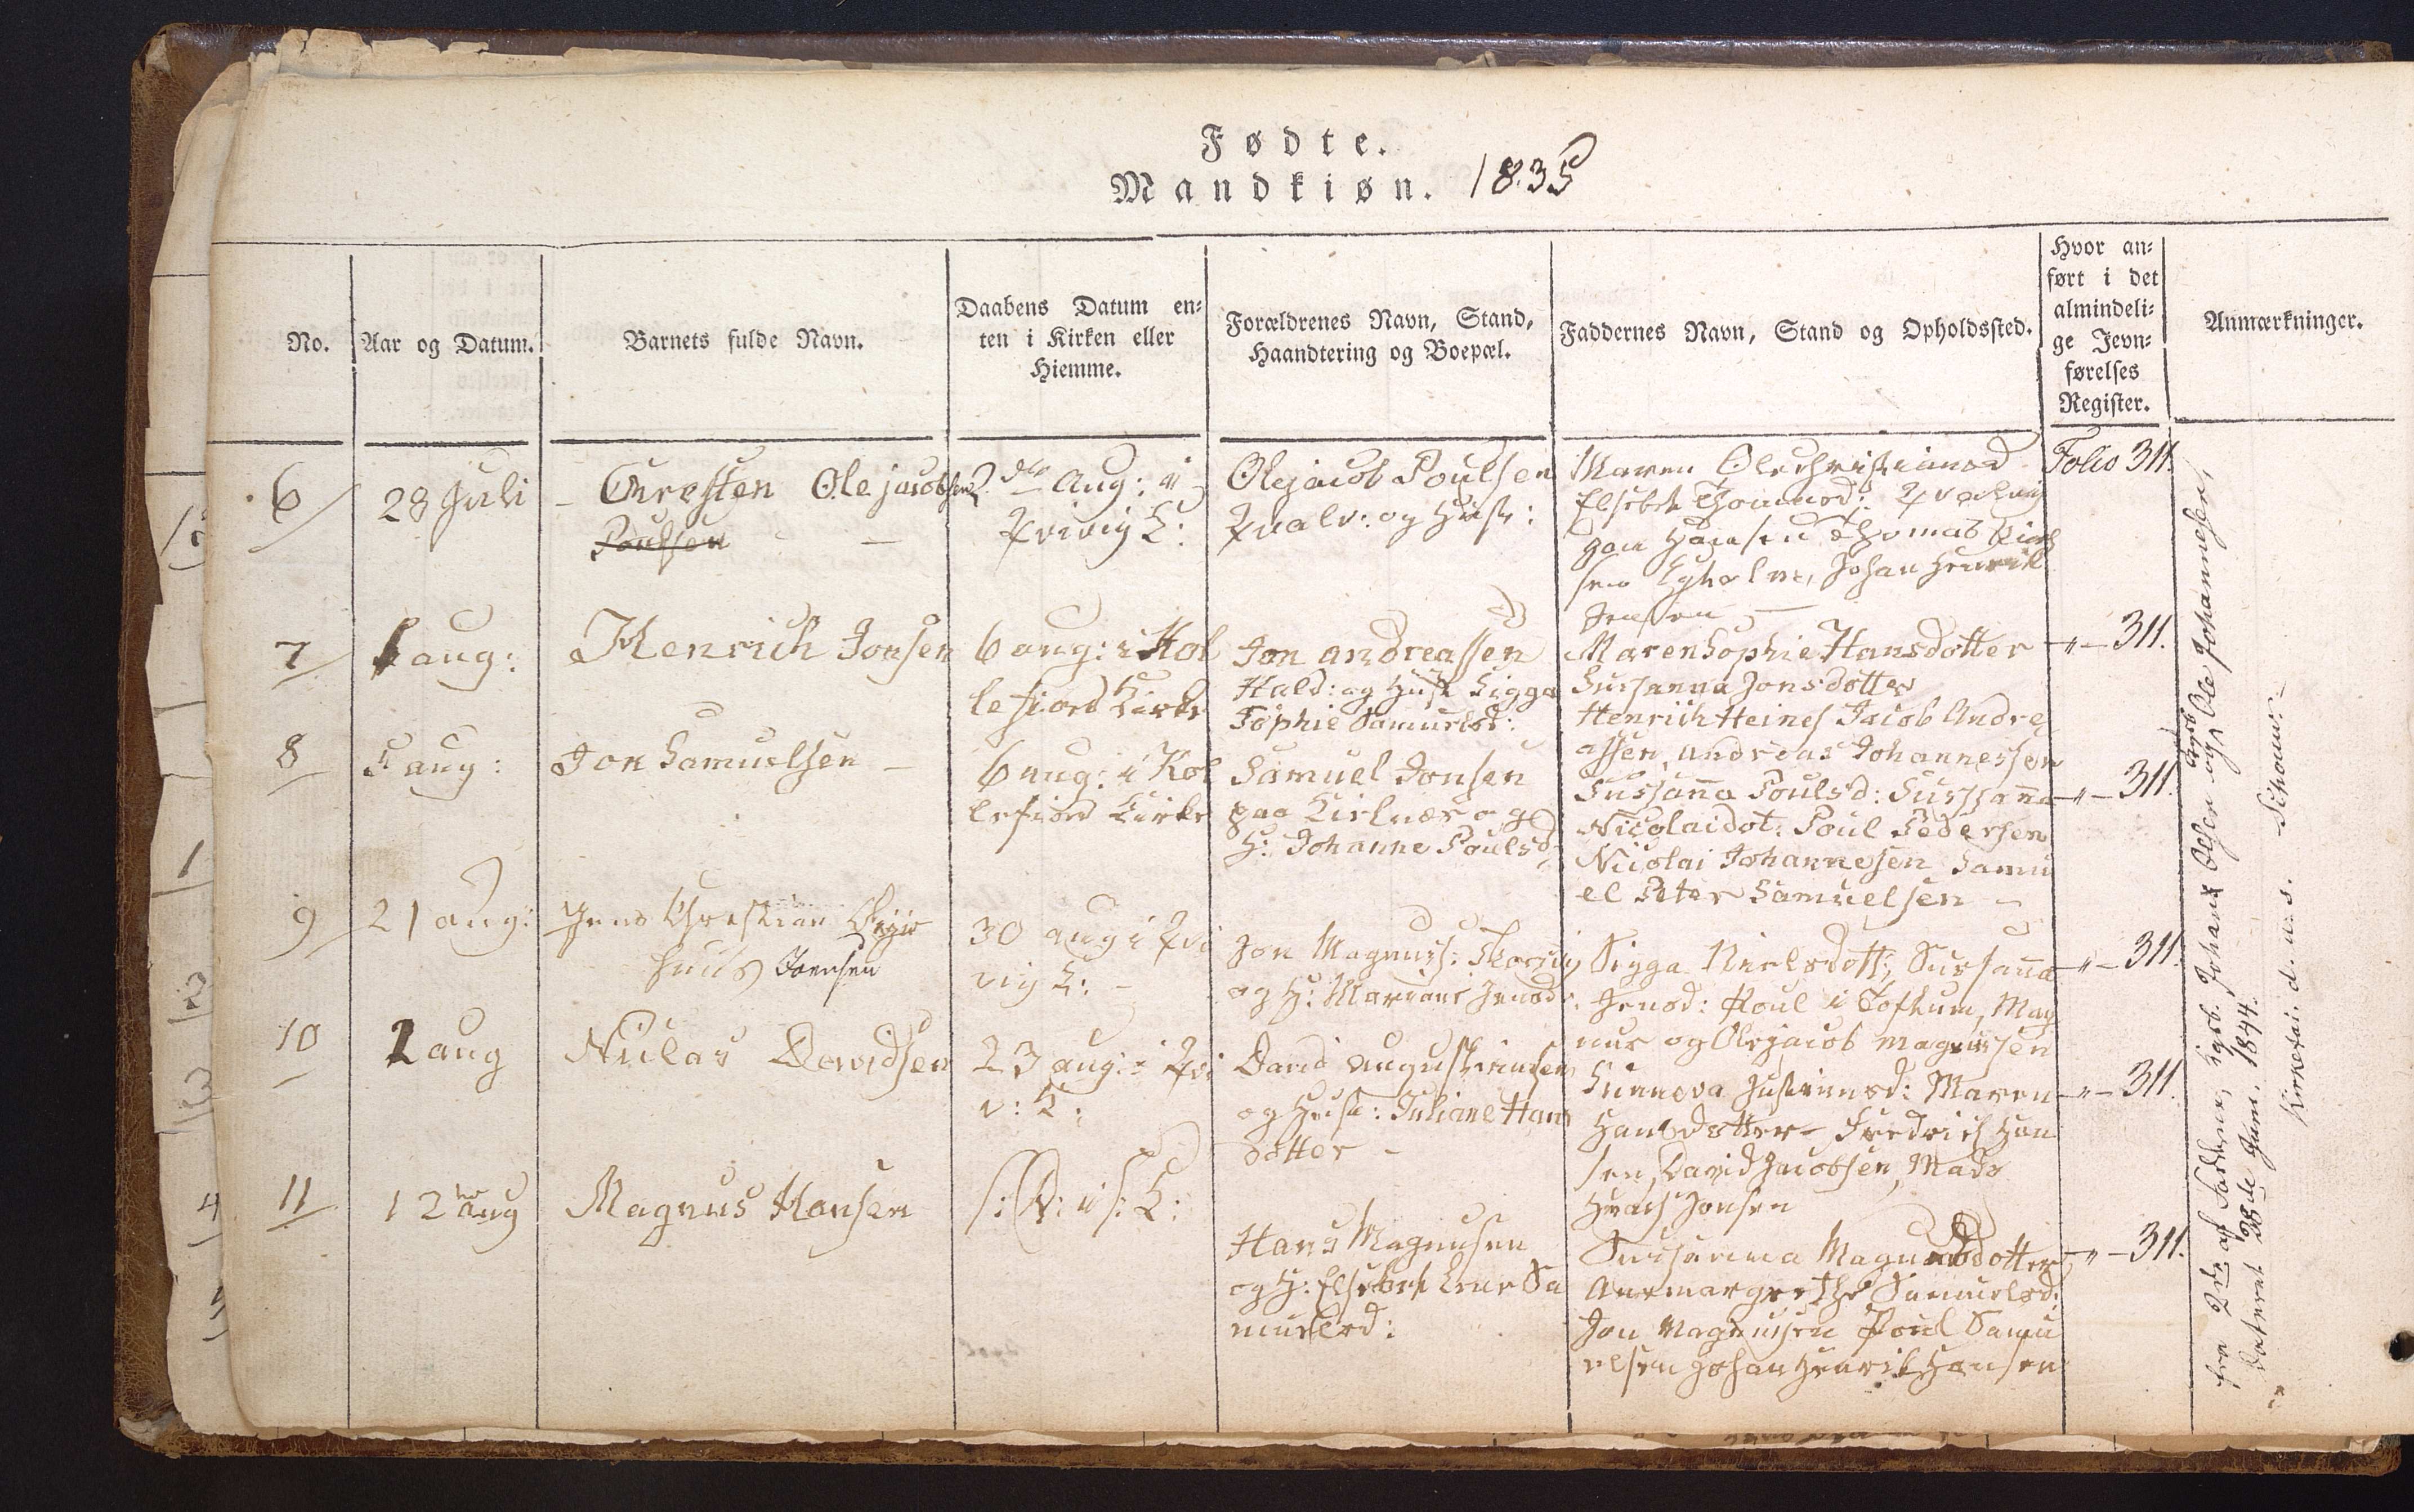 Fødte.
Mandkiøn. 1835
No.
Aar og Datum.
Barnets fulde Navn.
Daabens Datum en-
ten i Kirken eller
Hiemme.
Forældrenes Navn, Stand,
Haandtering og Boepæl.
Faddernes Navn, Stand og Opholdssted.
Hvor an-
ført i det
almindeli-
ge Jevn-
førelses
Register.
Anmærkninger.
6
28 Juli
Chresten Ole jacobsen
Poulsen
2den Aug: i
Qvivig K:
Olejacob Poulsen
Qvalv: og Hust:
Maren Olechristiansd
Elsebeth Thomasd:
Hansen Thomas
Johan Henrik
Jensen
Folio 311.
7
aug:
Henrich Jonsen
6 aug: i Kol
lefiord Kirke
Jon andreassen
Hald: og Hust Sigga
Sophie Samuelsd:
Maren Sophie Hansdotter
Sussanna Jonsdotter
Henrich Heines Jacob Andre
assen, andreas Johannessen
-"- 311.
8
5 aug:
Jon Samuelsen
6 aug: i Kol
lefiord Kirke
Samuel Jonsen
paa Kirknæs og
H: Johanne Poulsd
Sussanna Poulsd: Sussanna
Nicolaidot: Poul Pedersen
Nicolai Johannesen Samu
el Peter Samuelsen
-"- 311.
9
21 aug:
Jens Christian
huus Joensen
30 aug i Qvi
vig K:
Jon Magnuss:
og H: Mariane Jensd:
Sigga Nielsdott; Sussanna
Jensd: Poul i Tofthum, Mag
nus og Olejacob Magnussen
-"- 311.
10
2 aug
Niclas Davidsen
23 aug: i Qvi
v: K:
David Augustinusen
og Hust: Juliane Hans
dotter
Sunneva Justinusd: Maren
Hansdotter Fredrich Han
sen, David Jacobsen, Mads
Jonsen
-"- 311.
11
12te aug
Magnus Hansen
Hans Magnusen
og H: Elsebeth Lene Sa
muelsd:
Sussanna Magnusdotter
Annemargrethe Samuelsd:
Jon Magnussen Poul Samu
elsen Johan Henrik Hansen
-"- 311.
fra 2de af Fadderne, Kgsb. Johans Olsen og Kgsb Ole Johannesen,
dateret 28de Juni 1844.
Kirketain d. u. s. Schrøter